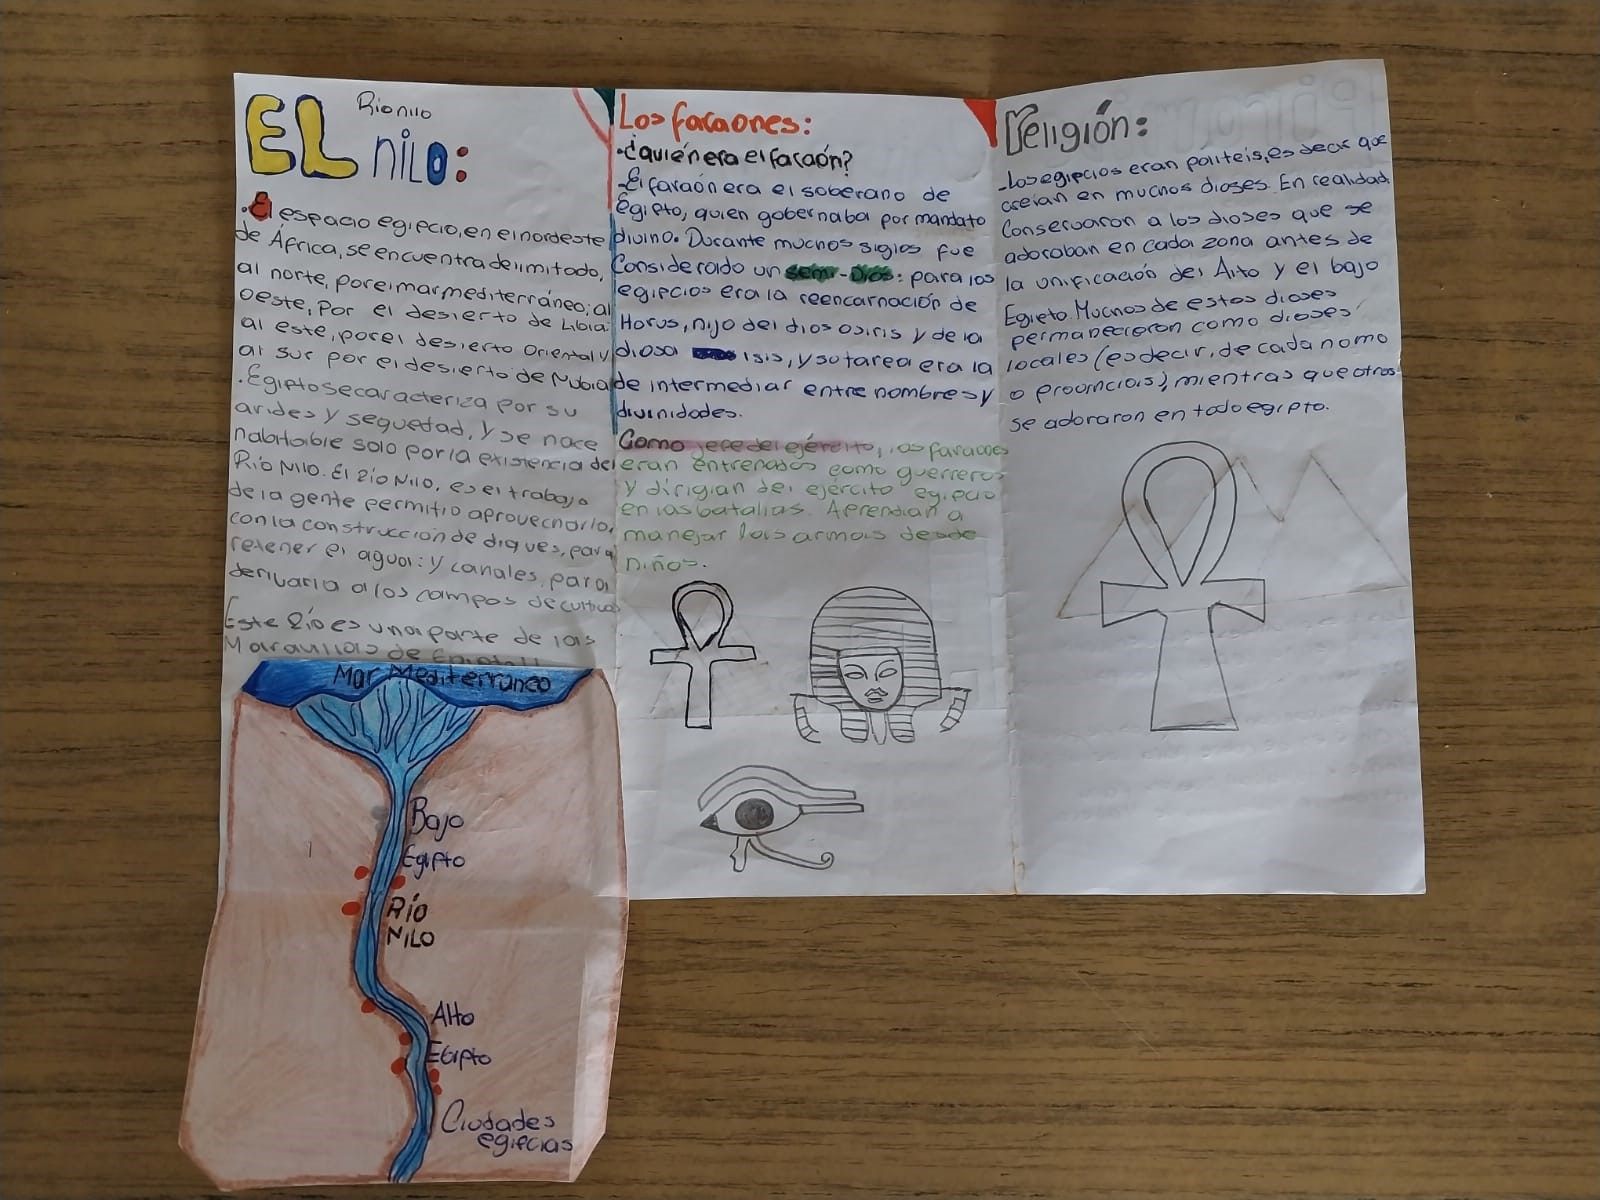 EL Rio nilo
nilo:
.El espacio egipcio, en el nordeste
de África, se encuentra delimitado,
al norte, por el mar mediterráneo; al
oeste, Por el desierto de Libia.
al este, por el desierto Oriental y
al sur por el desierto de Nubia
.Egipto se caracteriza por su
arides y sequedad, y se hace
habitable solo por la existencia del
Río Nilo. El Río Nilo, es el trabajo
de la gente permitio aprovecharlo,
con la construcción de diques, para
retener el agua: y canales, para
derivarla a los campos de cultivos
Este Río es una parte de las
Maravillas de
Mar Mediterraneo
Bajo
Egipto
Río
NILO
Alto
Egipto
Ciudades
egipcias
Los faraones:
.¿quién era el faraón?
-El faraón era el soberano de
Egipto, quien gobernaba por mandato
divino. Durante muchos siglos fue
Considerado un semi-Dios: para los
egipcios era la reencarnación de
Horus, hijo del dios osiris y de la
diosa isis, y su tarea era la
de intermediar entre hombres y
divinidades.
Como jefe del ejército, los faraones
eran entrenados como guerreros
y dirigian del ejército egipcio
en las batallas. Aprendian a
manejar las armas desde
niños.
religión:
-Los egipcios eran politeis, es decir que
creian en muchos dioses. En realidad,
Conservaron a los dioses que se
adoraban en cada zona antes de
la unificación del Alto y el bajo
Egipto. Muchos de estos dioses
permanecieron como dioses
locales (es decir, de cada nomo
o provincias), mientras que otros
se adoraron en todo egipto.